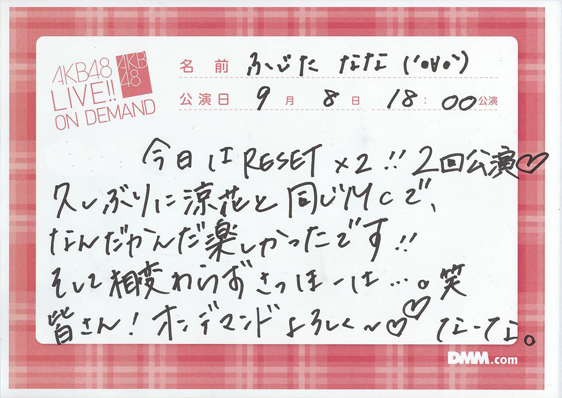 AKB48
LIVE!!
ON DEMAND
AKB
48
名前 ふじた なな ('o∀o')
公演日 9月 8日 18:00公演
今日はRESET×2!!2回公演♡
久しぶりに涼花と同じMCで、
なんだかんだ楽しかったです!!
そして相変わらずさっほーは…。笑
皆さん!オンデマンドよろしく~♡♡ なーな。
DMM.com